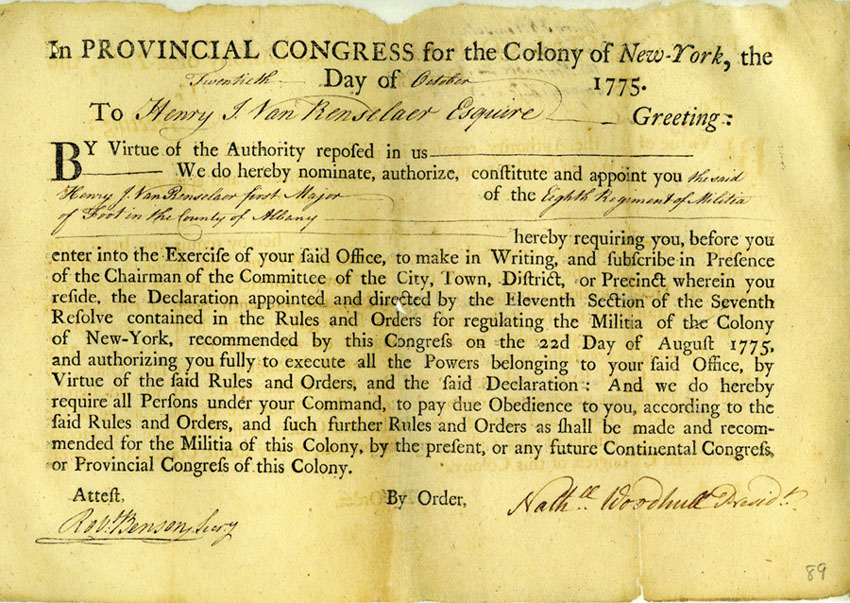 In PROVINCIAL CONGRESS for the Colony of New-York, the
Twentieth Day of October 1775.
To Henry J. Van Renselaer Esquire Greeting:
BY Virtue of the Authority reposed in us
We do hereby nominate, authorize, conſtitute and appoint you the said
Henry J. Van Renselaer first Major of the Eighth Regiment of Militia
of Foot in the County of Albany
hereby requiring you, before you
enter into the Exerciſe of your ſaid Office, to make in Writing, and ſubſcribe in Preſence
of the Chairman of the Committee of the City, Town, Diſtrict, or Precinct wherein you
reſide, the Declaration appointed and directed by the Eleventh Section of the Seventh
Reſolve contained in the Rules and Orders for regulating the Militia of the Colony
of New-York, recommended by this Congreſs on the 22d Day of Auguſt 1775,
and authorizing you fully to execute all the Powers belonging to your ſaid Office, by
Virtue of the ſaid Rules and Orders, and the ſaid Declaration: And we do hereby
require all Perſons under your Command, to pay due Obedience to you, according to the
ſaid Rules and Orders, and ſuch further Rules and Orders as ſhall be made and recom-
mended for the Militia of this Colony, by the preſent, or any future Continental Congreſs,
or Provincial Congreſs of this Colony.
Atteſt, By Order,
Robt. Benson, Secry Nathll. Woodhull Presidt.
89